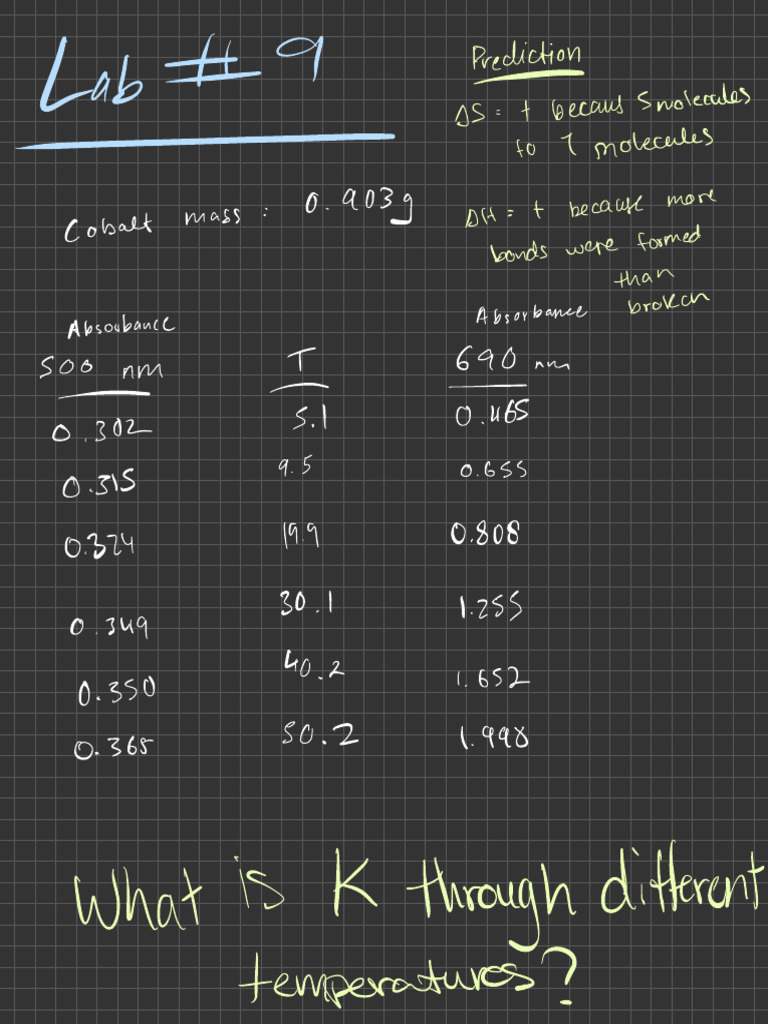 Lab # 9
Prediction
ΔS = + becaus 5 molecules
to 7 molecules
Cobalt mass : 0.903g
ΔH = + because more
bonds were formed
than
broken
Absorbance Absorbance
500 nm T 690 nm
0.302 5.1 0.465
0.315 9.5 0.655
0.324 19.9 0.808
0.349 30.1 1.255
0.350 40.2 1.652
0.365 50.2 1.998
What is K through different
temperatures?